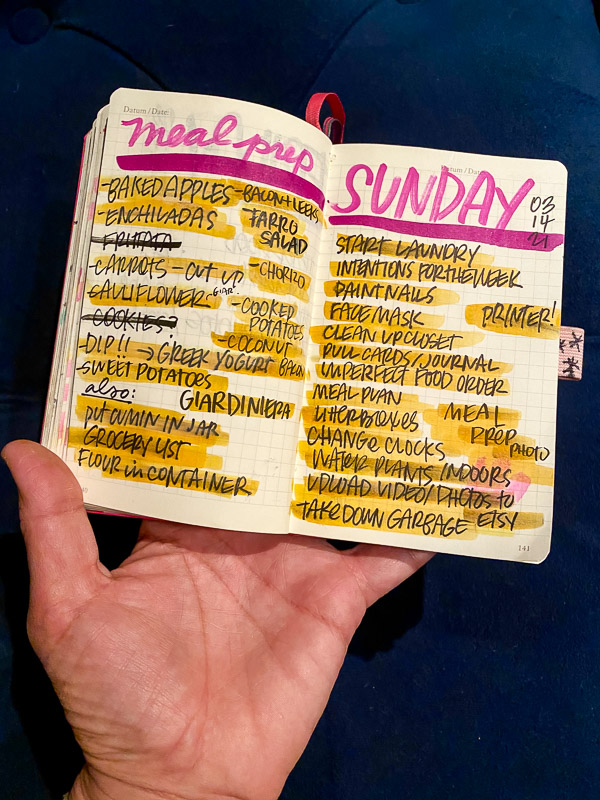 Datum / Date:
meal prep
-BAKED APPLES
-ENCHILADAS
-FRITATA
-CARROTS - CUT UP
CAULIFLOWER GIAR.
-COOKIES?
-DIP!! → GREEK YOGURT
-SWEET POTATOES
-BACON+LEEKS
TARRO
SALAD
-CHORIZO
-COOKED
POTATOES
-COCONUT
BACON
also:
GIARDINIERA
PUT CUMIN IN JAR
GROCERY LIST
FLOUR in CONTAINER
Datum / Date:
SUNDAY
03
14
21
START LAUNDRY
INTENTIONS FOR THE WEEK
PAINT NAILS
FACE MASK
PRINTER!
CLEAN UP CLOSET
PULL CARDS/JOURNAL
IMPERFECT FOOD ORDER
MEAL PLAN
LITTERBOXES
CHANGE CLOCKS
MEAL
PREP
PHOTO
WATER PLANTS/INDOORS
UPLOAD VIDEO/PHOTOS to
ETSY
TAKE DOWN GARBAGE
141